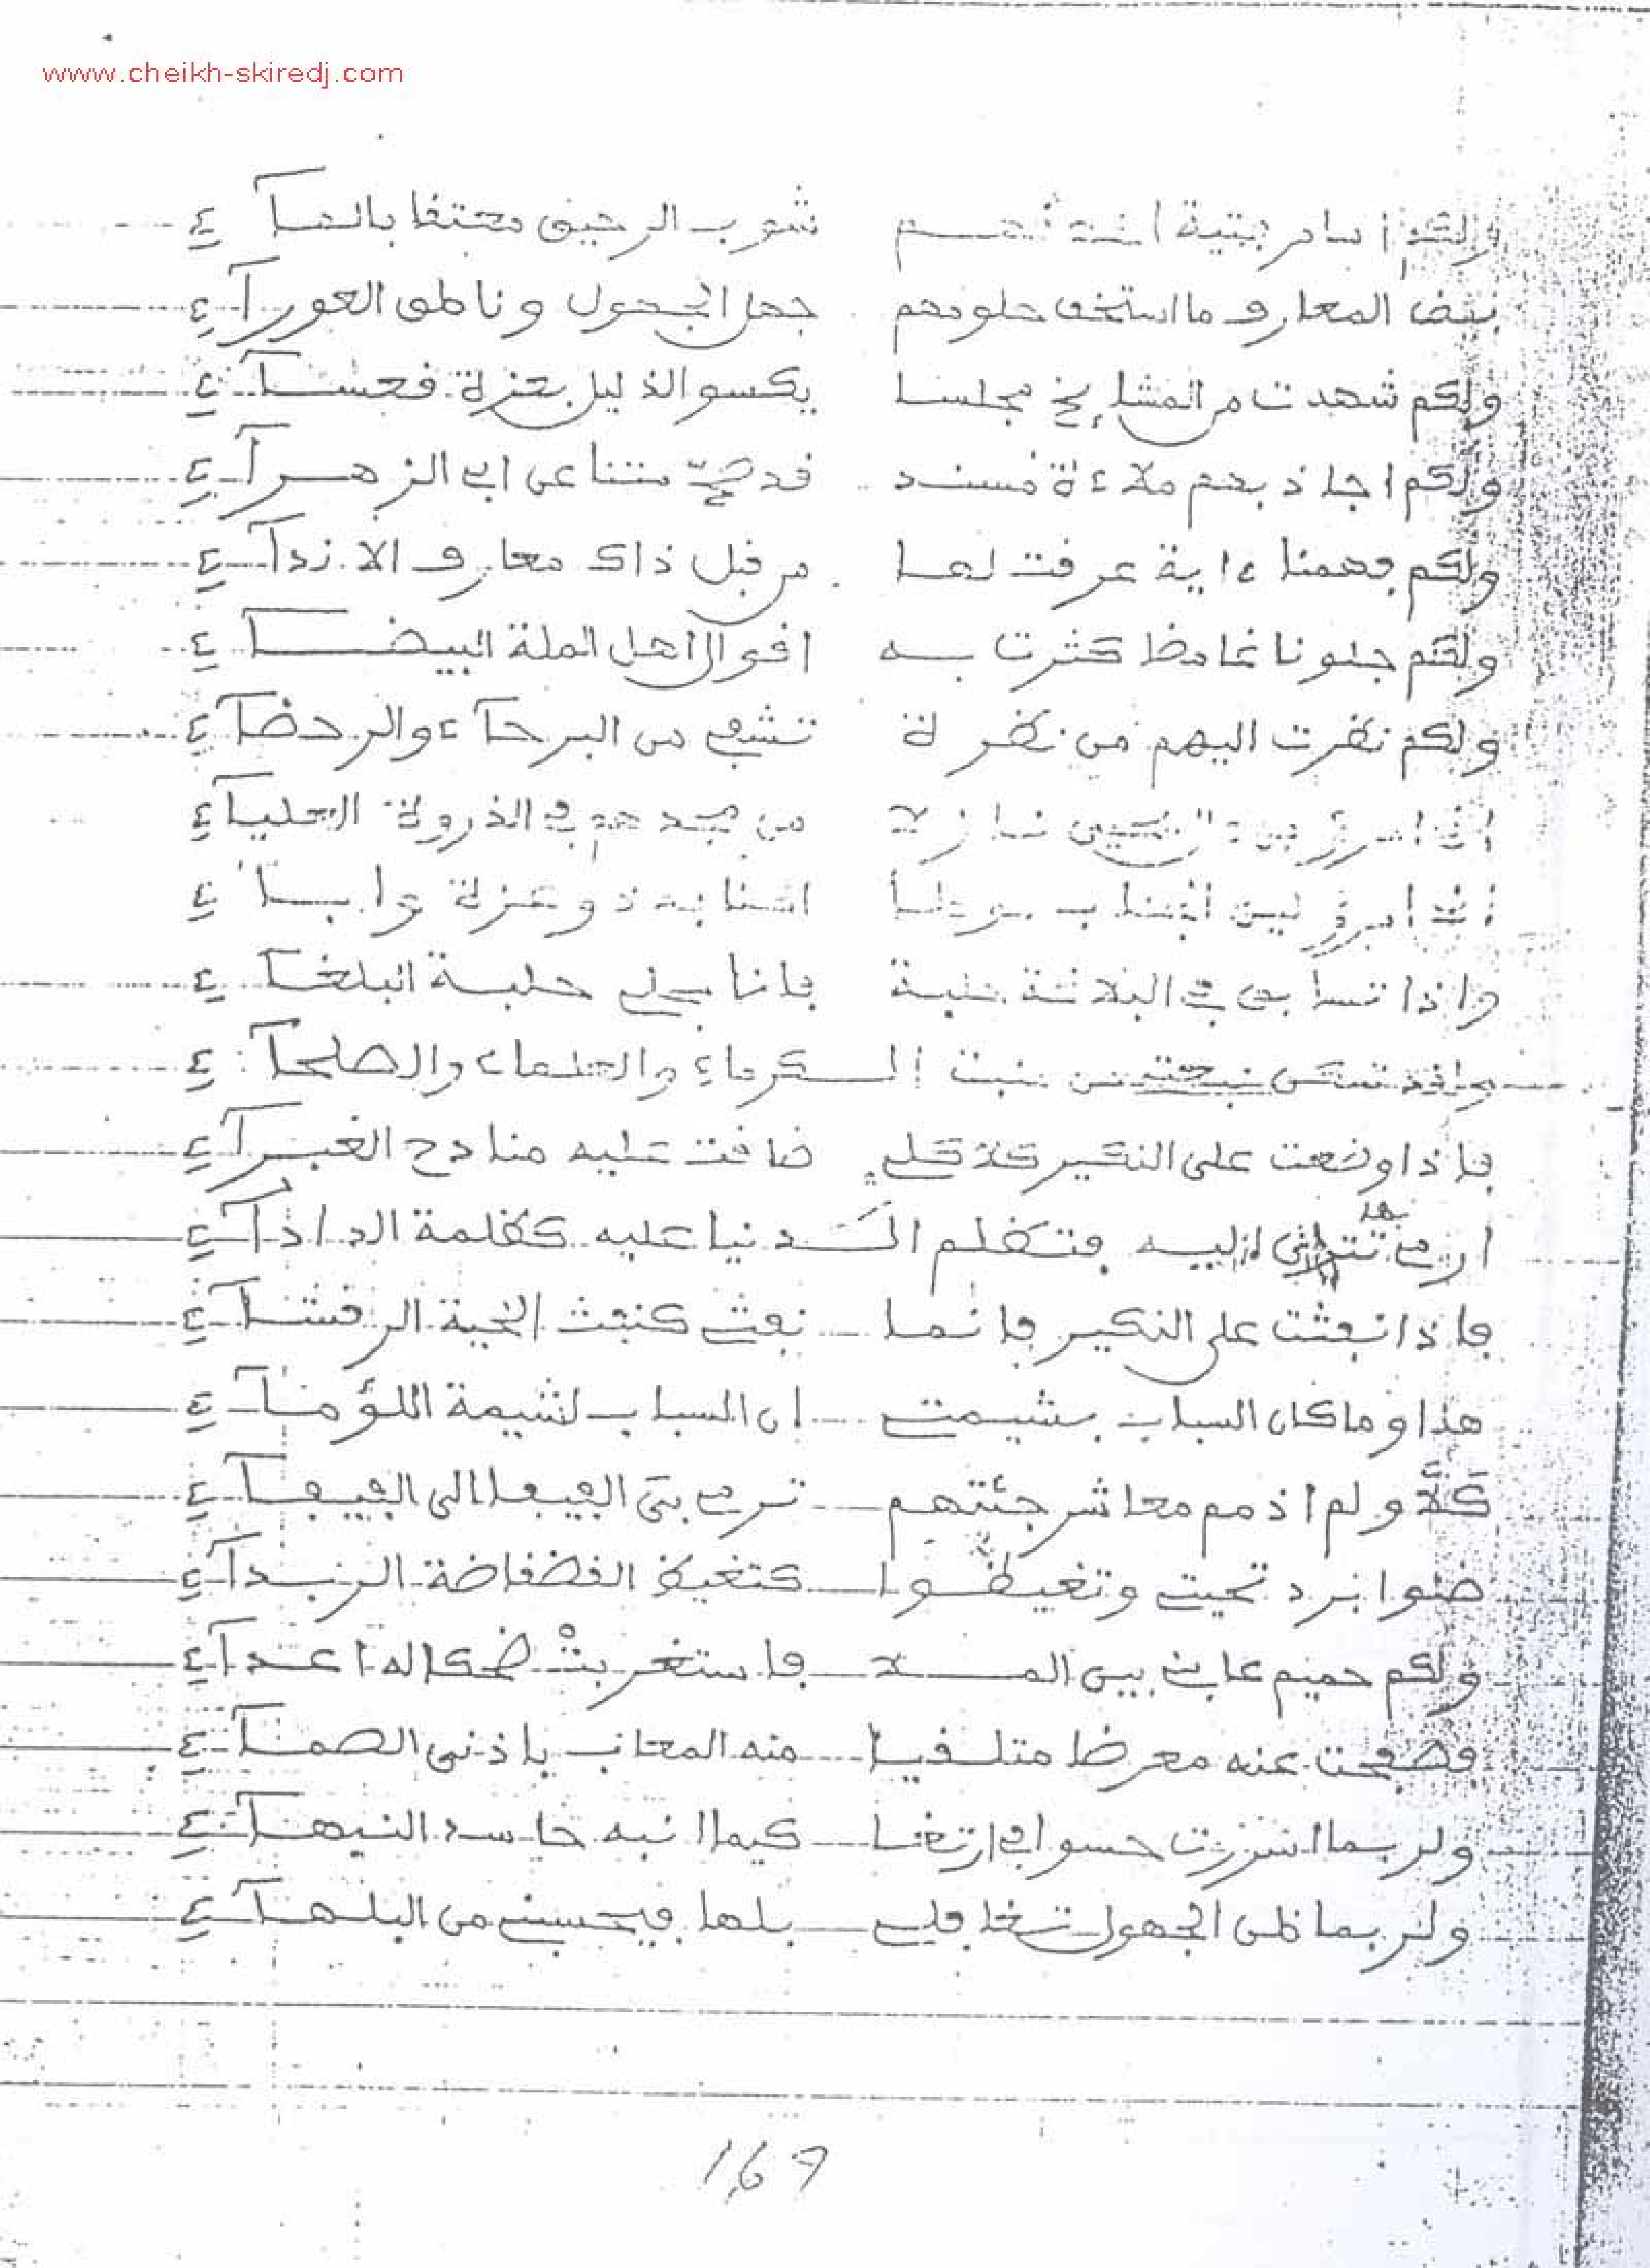 www.cheikh-skiredj.com
ولكم اسامر فتية شرب الرحيق معتقا بالمآء
بيض المعارف ما استخف حلومهم جهل الجهول وناطق العورآء
ولكم شهدت من المشايخ مجلسا يكسو الذليل بعزة فعسآء
ولكم اجاذبهم ملاءة مسند قد صح متنا عن ابي الزهرآء
ولكم فهمنا ءاية عرفت لها من قبل ذاك معارف الازدآء
ولكم جلونا غامضا كثرت به اقوال اهل الملة البيضآء
ولكم نظرت اليهم من نظرة تشفي من البرحآء والرحضآء
امرؤ نازلا من مجدهم في الذروة العلياء
امرؤ ليس ذو عزة وابآء
واذا تسابق في البلاغة فانا مجلي حلبة البلغآء
الكرماء والعلماء والصلحآء
فاذا وضعت على النكير كلاكلي ضاقت عليه منادح الغبرآء
ارمي بها اليه فتظلم الدنيا عليه كظلمة الدادآء
فاذا نفثت على النكير فانما نفثي كنفث الحية الرقشآء
هذا وما كان السباب بشيمتي ان السباب لشيمة اللؤمآء
كلا ولم اذمم معاشر جئتهم ترمي بي الفيفا الى الفيفآء
ضنوا برد تحيتي وتغيظوا كتغيظ الفضفاضة الربدآء
ولكم حميم عابني بين الملا فاستغربت ضحكا له اعدآء
فصفحت عنه معرضا متلقيا منه المعائب باذني الصمآء
ولربما اشررت حسوا في ارتغا كيما انبه حاسد النبهآء
ولربما ظن الجهول تغافلي بلها فيحسبني من البلهآء
167